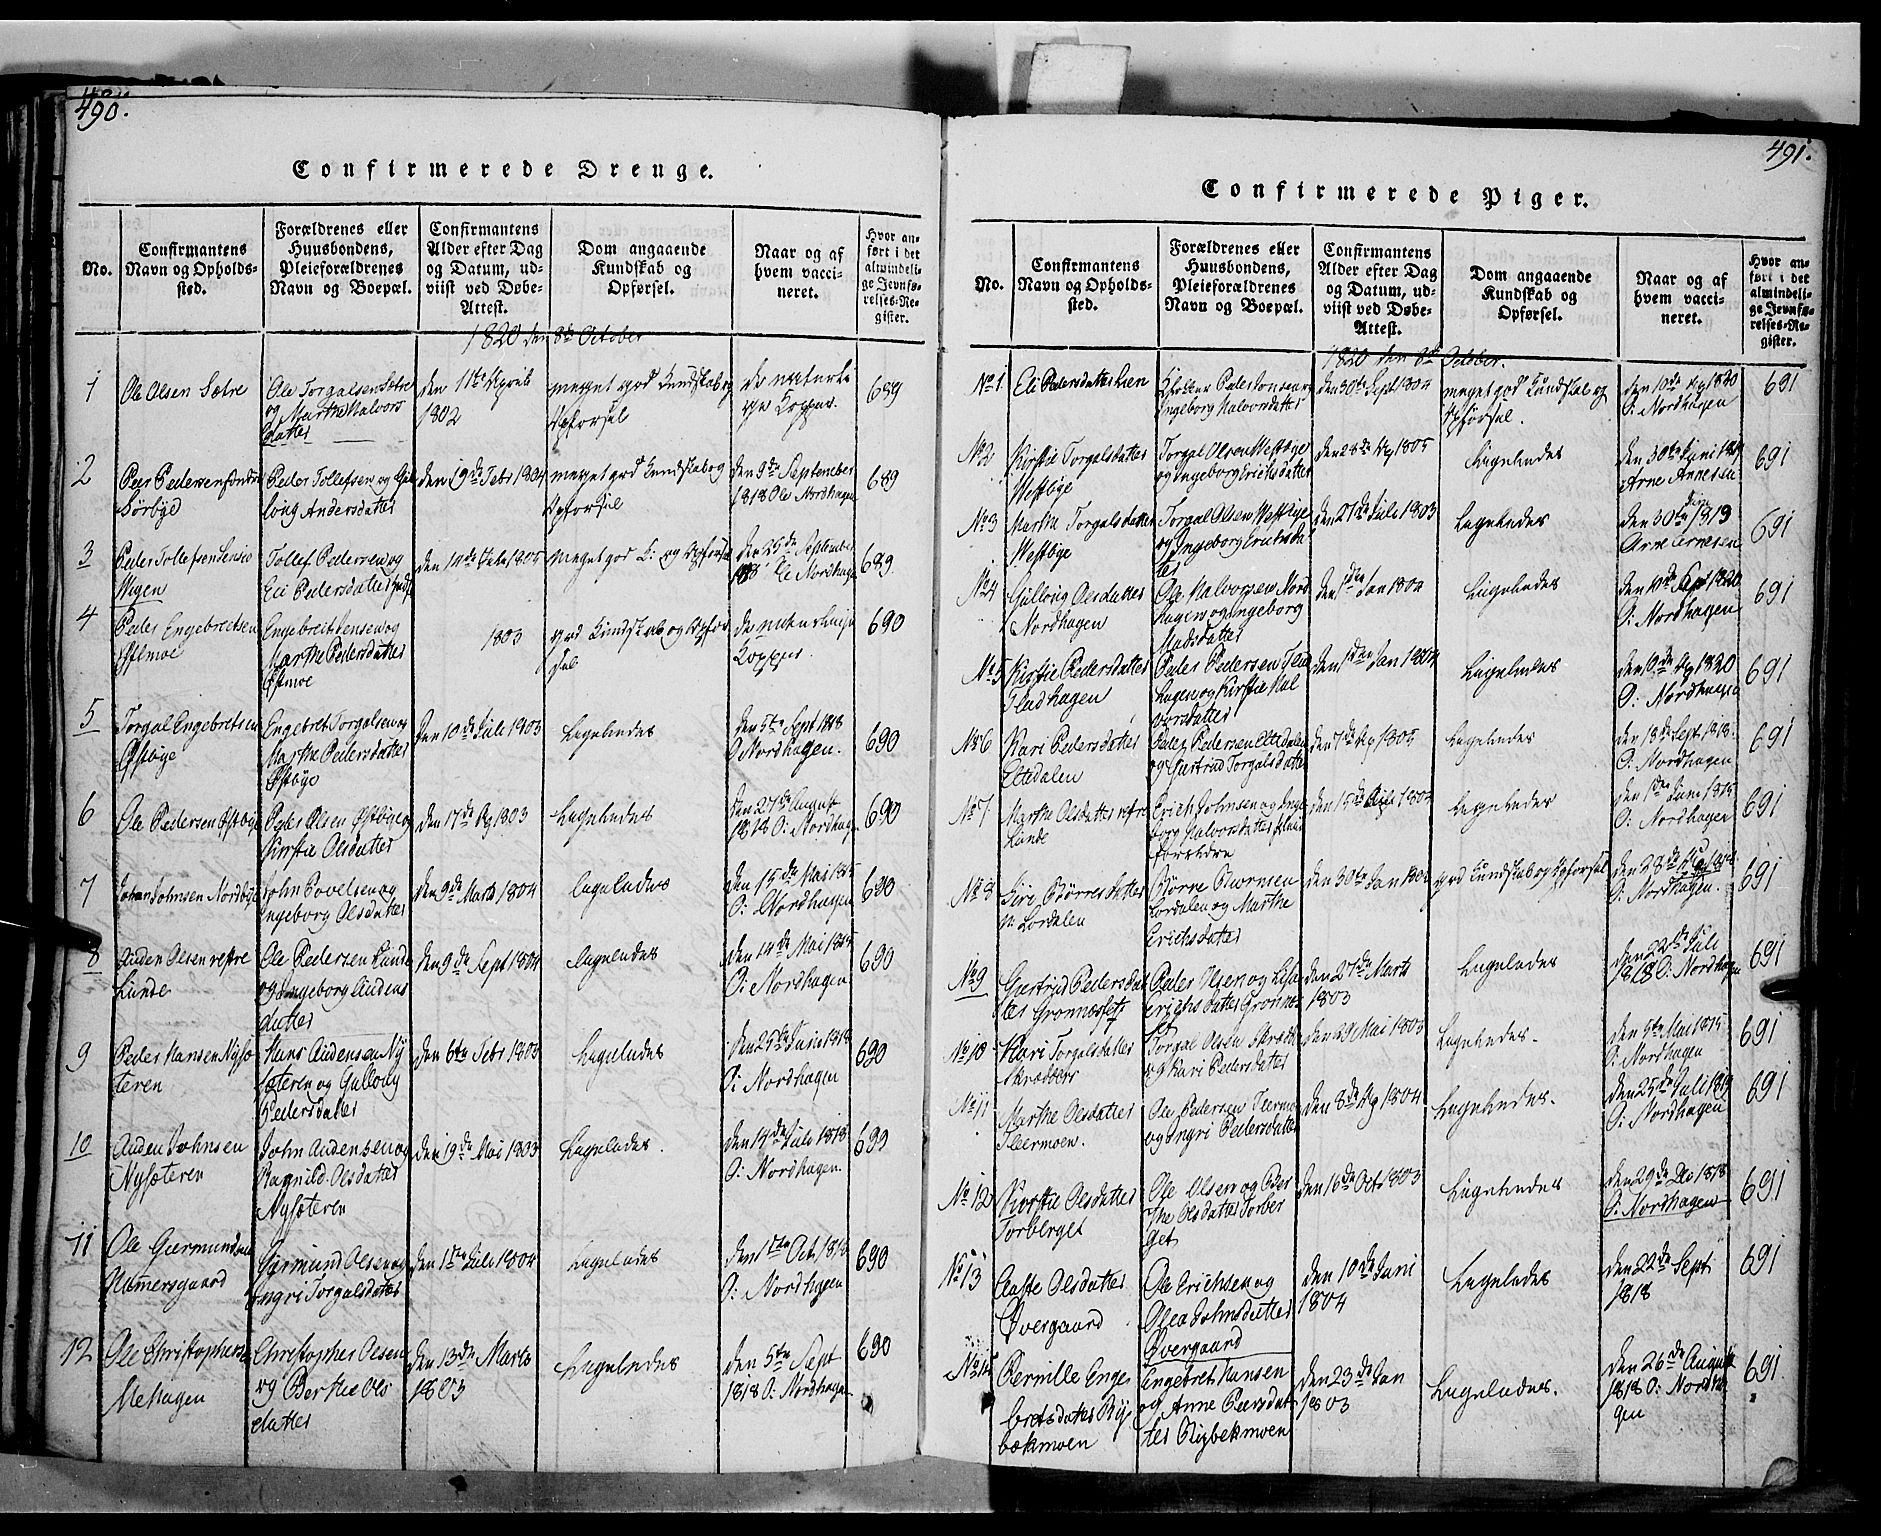 490.
Confirmerede Drenge.
No.
Confirmantens Navn og Opholds-sted.
Forældrenes eller Huusbondens, Pleieforældrenes Navn og Boepæl.
Confirmantens Alder efter Dag og Datum, ud-viist ved Døbe-Attest.
Dom angaaende Kundskab og Opførsel.
Naar og af hvem vacci-neret.
Hvor an-ført i det almindeli-ge Jevnfø-relses-Re-gister.
1820 den 8de October
1
Ole Olsen Sætre
Ole Torgalsen Sætre
og Marthe Halvors
datter
den 11te April
1802
meget god Kundskab og
Opførsel
de naturli
ge Kopper
689
2
Peer Pedersen
Sörbÿe
Peder Tollefsen og Gul
loug Andersdatter
den 19de Febr 1804
meget god Kundskab og
Opførsel
den 9de September
1818 Ole Nordhagen
689
3
Peder Tollefsen
Wigen
Tollef Pedersen og
Eli Pedersdatter
den 14de 1805
meget god K: og Opførsel
den 25de September
1818 Ole Nordhagen
689
4
Peder Engebretsen
Østmoe
Engebret Jensen og
Marthe Pedersdatter
Østmoe
1803
god Kundskab og Opfør
sel
de naturlige
Kopper
690
5
Torgal Engebretsen
Østbÿe
Engebret Torgalsen og
Marthe Pedersdatter
Østbÿe
den 10de Juli 1803
Ligeledes
den 5te Sept 1818
O: Nordhagen.
690
6
Ole Pedersen Østbÿe
Peder Olsen Østbÿe og
Kirstie Olsdatter
den 17de Ag 1803
Ligeledes
den 27de August
1818 O: Nordhagen
690
7
Johan Johnsen Nordbÿe
John Povelsen og
Ingeborg Olsdatter
den 9de Marts 1804
ligeledes
den 15de Mai 1815
O: Nordhagen
690
8
Auden Olsen nestre
Lunde
Ole Pedersen Lunde
og Ingeborg Audens
datter
den 9de Sept 1804
ligeledes
den 14de Mai 1815
O: Nordhagen
690
9
Peder Hansen Nÿsæ
teren
Hans Audensen Nÿ
sæteren og Gulloug
Pedersdatter
den 6te Febr 1803
Ligeledes
den 25de Juni 1818
O: Nordhagen
690
10
Auden Johnsen
Nÿsæteren
John Audensen og
Ragnild Olsdatter
Nÿsæteren
den 19de Mai 1803
Ligeledes.
den 14de Juli 1818
O: Nordhagen.
690
11
Ole Giermundsen
Hamersgaard
Giermund Olsen og
Ingri Torgalsdatter
den 1ste Juli 1804
Ligeledes
den 1ste Oct 1818
O: Nordhagen
690
12
Ole Christophersen
Mehagen
Christopher Olsen
og Berthe Ols
datter
den 13de Marts
1803
Ligeledes
den 5te Sept
1818 O: Nordhagen
690
491.
Confirmerede Piger.
No.
Confirmantens Navn og Opholds-sted.
Forældrenes eller Huusbondens, Pleieforældrenes Navn og Boepæl.
Confirmantens Alder efter Dag og Datum, ud-viist ved Døbe-Attest.
Dom angaaende Kundskab og Opførsel.
Naar og af hvem vacci-neret.
Hvor an-ført i det almindeli-ge Jevnfø-relses-Re-gister.
1820 den 8de October.
No 1
Eli Pedersdatter Lien
Peder Jonsen og
Ingeborg Halvorsdatter
den 30te Sept 1804
meget god Kundskab og
Opførsel.
den 10de Ag 1820
O: Nordhagen
691
No 2
Kirstie Torgalsdatter
Westbÿe
Torgal Olsen Westbÿe
og Ingeborg Erichsdatter
den 28de Ag 1805
Ligeledes
den 30te Juni 1819
Arne Arnesen
691
No 3
Marthe Torgalsdatter
Westbÿe
Torgal Olsen Westbÿe
og Ingeborg Ericksda
ter
den 27de Juli 1803
Ligeledes
den 30te Juni 1819
Arne Arnesen
691
No 4
Gulloug Olsdatter
Nordhagen
Ole Halvorsen Nord
hagen og Ingeborg
Madsdatter
den 1ste Jan 1804
Ligeledes
den 10de Sept 1820
O: Nordhagen
691
No 5
Kirstie Pedersdatter
Fladhagen
Peder Pedersen Flad
hagen og Kirstie Hal
vorsdatter
den 1ste Jan 1804
Ligeledes
den 10de Ag 1820
O: Nordhagen
691
No 6
Kari Pedersdatter
Eltedalen
Peder Pedersen Eltedalen
og Giertrud Torgalsdatter
den 7de Ag 1805
Ligeledes
den 18de Sept 1818.
O: Nordhagen
691
No 7
Marthe Olsdatter
Lunde
Erich Johnsen og Inge
borg Halvorsdatter Pleie
forældre
den 15de 1804
Ligeledes
den 1ste Juni 1815
O: Nordhagen
691
No 8
Siri Børresdatter
Lordalen
Børre
Lordalen og Marthe
Erichsdatter
den 30te Jan
god Kundskab og Opførsel
den 28de
O: Nordhagen.
691
No 9
Giertrud Pedersdat
ter Grönnæsset
Peder Olsen og
Erichsdatter Grönnæs
set
den 27de Marts
1803
Ligeledes
den 22de Juli
1818 O: Nordhagen
691
No 10
Kari Torgalsdatter
Skrædder
Torgal Olsen Skrædder
og Kari Pedersdatter
den 29 Mai 1803
Ligeledes.
den 5te Mai 1815
O: Nordhagen
691
No 11
Marthe Olsdatter
Tiermoen.
Ole Pedersen Tiermo
og Ingri Pedersdatter
den 8de Ag 1804
Ligeledes.
den 25de Juli 1819
O: Nordhagen
691
No 12
Kirstie Olsdatter
Torberget
Ole Olsen og Ber
the Olsdatter Torber
get
den 16de Oct 1803
Ligeledes
den 29de Dec 1818
O: Nordhagen
691
No 13
Aaste Olsdatter
Øvergaard
Ole Erichsen og
Olea Johnsdatter
Øvergaard
den 10de Juni
1804
Ligeledes
den 22de Sept
1818
691
No 14
Pernille Enge
bretsdatter Rÿ
bækmoen
Engebret Hansen
og Anne Peersdat
ter Rÿgbekmoen
den 23de Jan
1803
Ligeledes.
den 26de August
1818 O: Nordha
gen
691